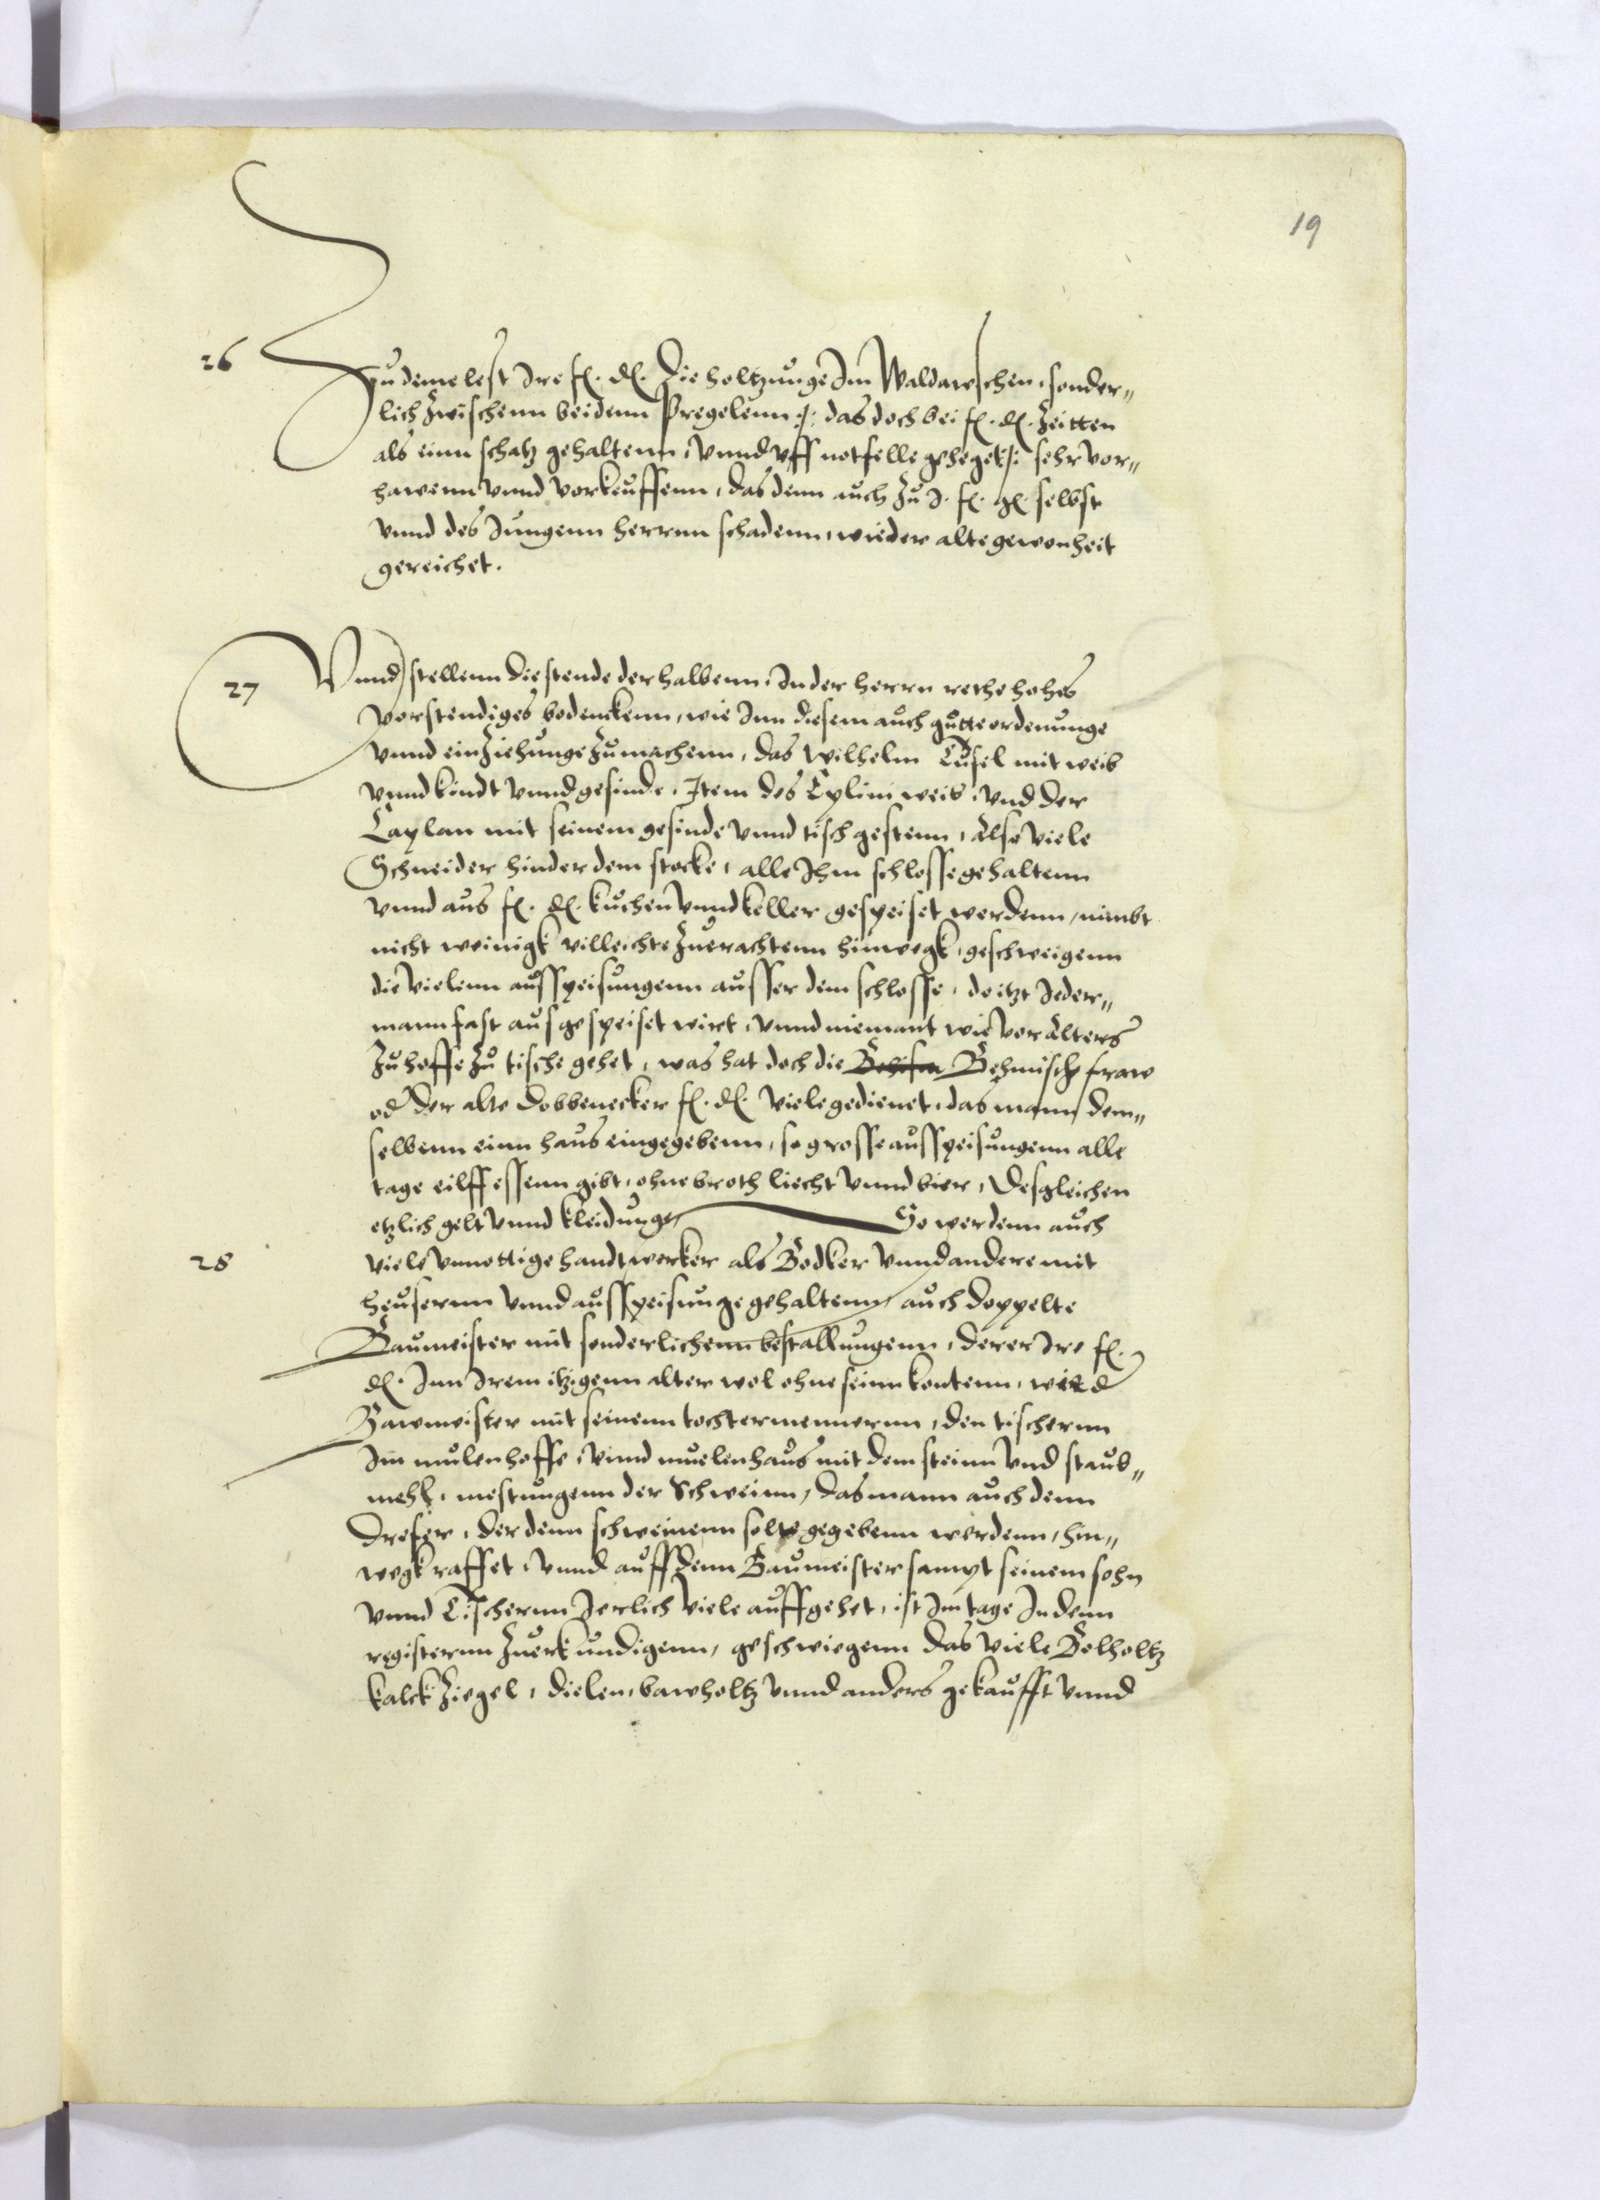 19
26
Zu deme lest Ire f. d. Die holtzunge Im Waldawschen, sonder„
lich zwischenn beidenn Pregelenn :/: das doch bei f. d. Zeitten
als einn schatz gehaltenn, vnnd vff notfelle geheget :/: sehr vor„
hawenn vnnd vorkeuffenn, das denn auch zu I. f. g. selbst
vnnd des Jungenn herrnn schadenn, wieder alte gewonheit
gereichet.
27
Vnnd stellenn die stende derhalbenn, In der herrn rethe hohes
vorstendiges bedenckenn, wie Inn diesem auch gutte ordenunge
vnnd einziehunge zumachenn, das Wilhelm Tusel mit weib
vnnd kindt vnnd gesinde, Item des Cylini weib, vnd der
Caplan mit seinem gesinde vnnd tischgestenn, also viele
Schneider hinder dem stocke, alle Ihm schlosse gehaltenn
vnnd aus f. d. kuchen vnnd keller gespeiset werdenn, nimbt
nicht weinigk villeichte zuerachtenn hinwegk, geschweigenn
die vielenn ausspeisungenn ausser dem schlosse, do itzt Jeder„
mann fast ausgespeiset wirt, vnnd niemant wie vor alters
zu hoffe zu tische gehet, was hat doch die Behmisch fraw
od der alte Dobbenecker f. d. viele gedienet, das mann dem„
selbenn einn haus eingegebenn, so grosse ausspeisungenn alle
tage eilff essenn gibt, ohne broth liecht vnnd bier, Desgleichen
etzlich gelt vnnd kleidunge So werdenn auch
28
viele vnnottige handtwerker als Bodker vnnd andere mit
heusernn vnnd ausspeisunge gehaltenn, auch doppelte
Baumeister mit sonderlichenn bestallungenn, derer Ire f.
d. Inn Irem itzigenn alter wol ohne seinn kontenn, wie d
Bawmeister mit seinenn tochtermennernn, den tischernn
Im mulenhoffe, vnnd muelenhaus mit dem steinn vnd staub„
mehl, mestungenn der Schweinn, das mann auch denn
Drefer, der denn schweinenn solte gegebenn werdenn, hin„
wegk raffet, vnnd auff denn Baumeister sampt seinem sohn
vnnd Tischernn Jerlich viele auffgehet, ist Im tage In denn
registernn zuerkundigenn, geschwiegenn das viele Bolholtz
kalck Ziegel, dielen, bawholtz vnnd anders gekaufft vnnd